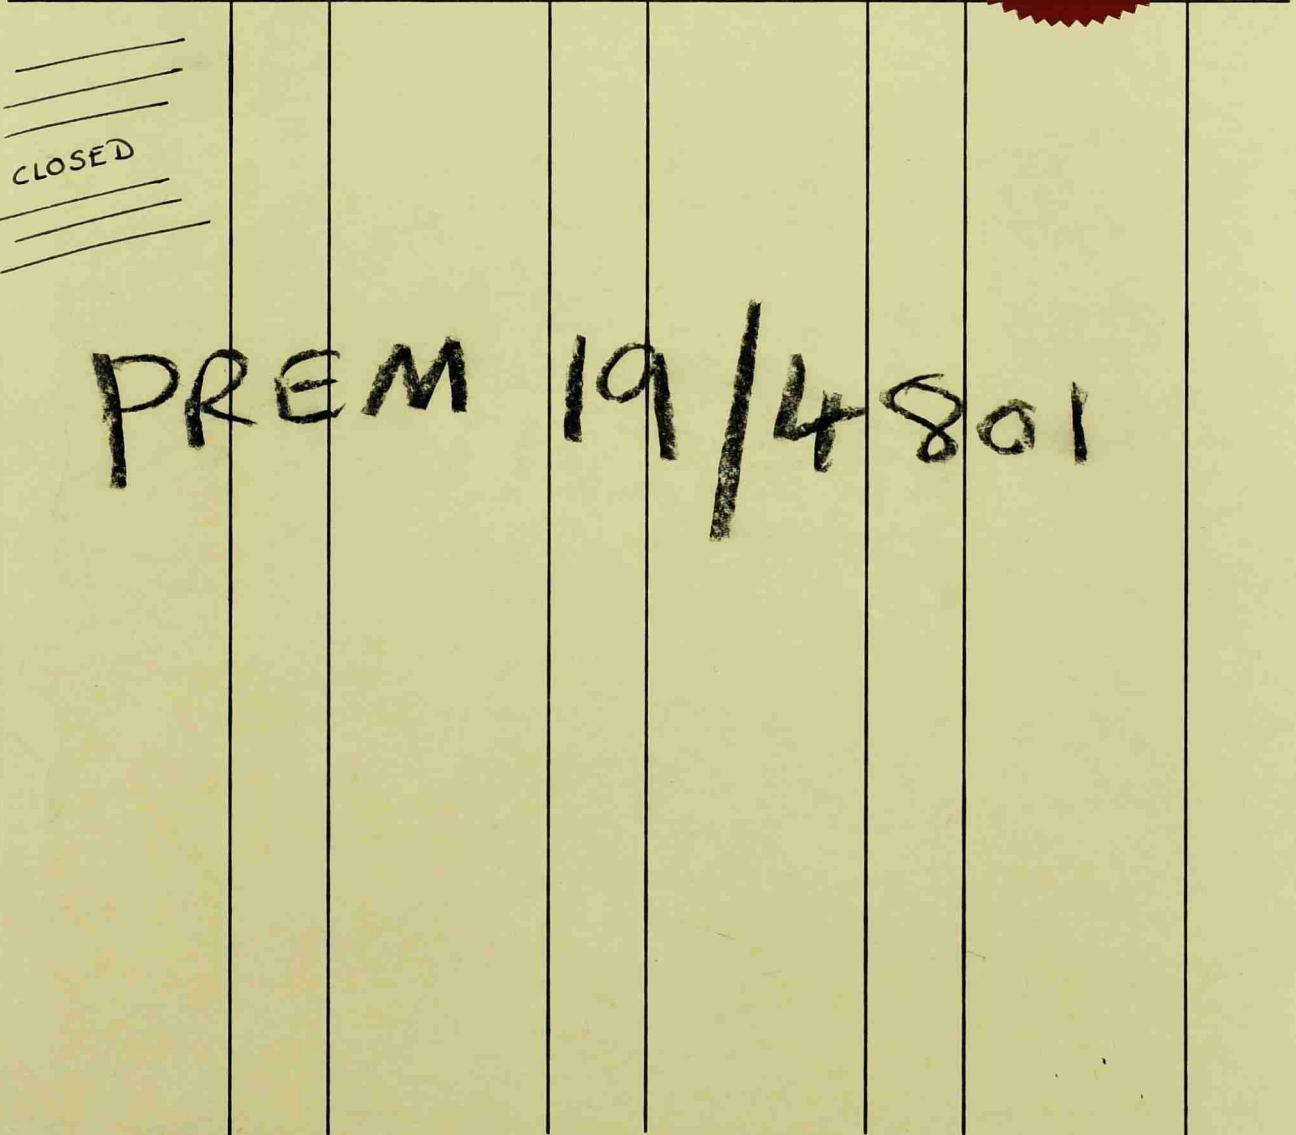 CLOSED
PREM 19/4801